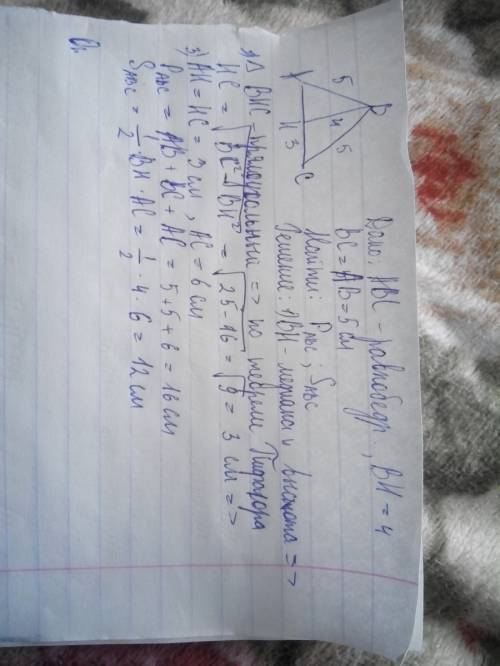 Дано: ABC - равнобедр., BH = 4
BC = AB = 5 см
Найти: P ABC ; S ABC
Решение: 1) BH - медиана и высота =>
B
5
4
5
H 3
C
2) Δ BHC прямоугольный => по теореме Пифагора
HC = √BC² - BH² = √25-16 = √9 = 3 см =>
3) AH = HC = 3 см, AC = 6 см
P ABC = AB + BC + AC = 5+5+6 = 16 см
S ABC = 1/2 · BH · AC = 1/2 · 4 · 6 = 12 см